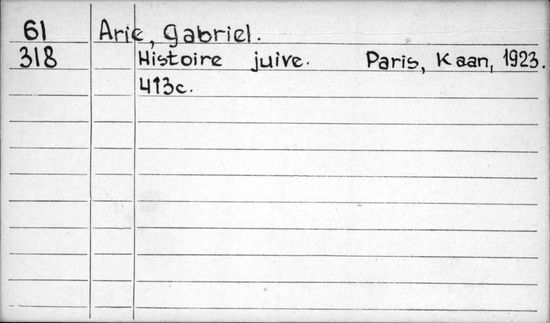 61 Arie, Gabriel.
318 Histoire juive. Paris, Kaan, 1923.
413c.